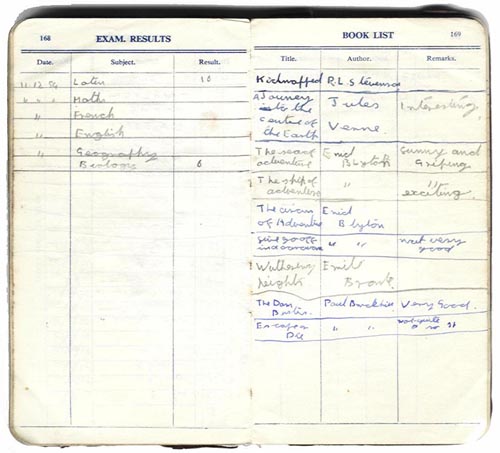 168 EXAM. RESULTS
Date. Subject. Result.
11.12.54 Laten 10
" " " Math
" French
" English
" Geography
Biology 6
BOOK LIST 169
Title. Author. Remarks.
Kidnapped R.L Stevenson
A Journey Jules Interesting.
to the
centre of Verne.
the Earth
The sea of Enid Sunny and
adventure Blyton Griping
The ship of " "
adventure exciting.
The circus Enid
of Adventure Blyton
" " not very
good
Wuthering Emile
heights Bronte.
The Dam Paul Brickhill Very Good.
Busters.
Escape or " "
Die